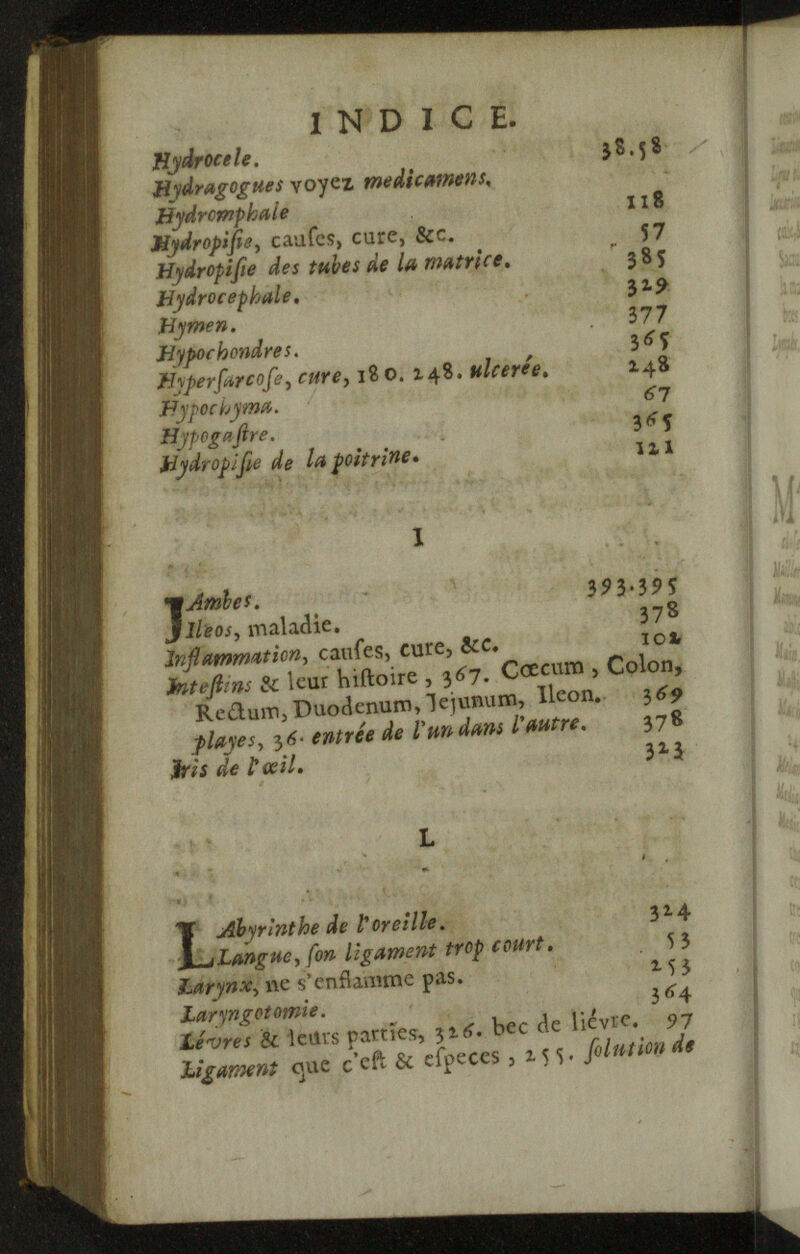 INDICE.
Hydrocele. 38.58
Hydragogues voyez medicamens.
Hydromphale 118
Hydropisie, causes, cure, &c. 57
Hydropisie des tubes de la matrice. 385
Hydrocephale. 329
Hymen. 377
Hypochondres. 365
Hypersarcose, cure, 180. 248. ulcerée. 248
Hypochyma. 67
Hypogastre. 365
Hydropisie de la poitrine. 121
I
IAmbes. 393.395
Ileos, maladie. 378
Inflammation, causes, cure, &c. 102
Intestins & leur histoire, 367. Cœcum, Colon,
Rectum, Duodenum, Iejunum, Ileon. 369
playes, 36. entrée de l'un dans l'autre. 378
Iris de l'œil. 323
L
LAbyrinthe de l'oreille. 324
Langue, son ligament trop court. 53
Larynx, ne s'enflamme pas. 253
Laryngotomie. 364
Lévres & leurs parties, 326. bec de liévre. 97
Ligament que c'est & especes, 255. solution de